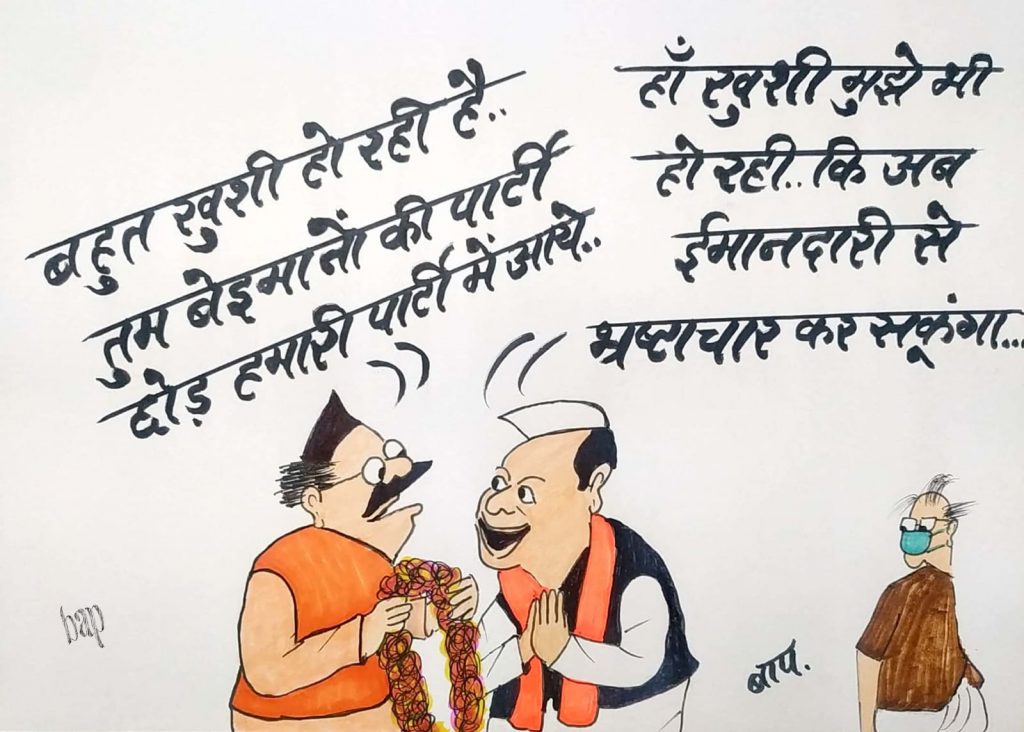 बहुत खुशी हो रही है..
तुम बेइमानों की पार्टी
छोड़ हमारी पार्टी में आये..
हाँ खुशी मुझे भी
हो रही.. कि अब
ईमानदारी से
भ्रष्टाचार कर सकूंगा...
bap
बाप.